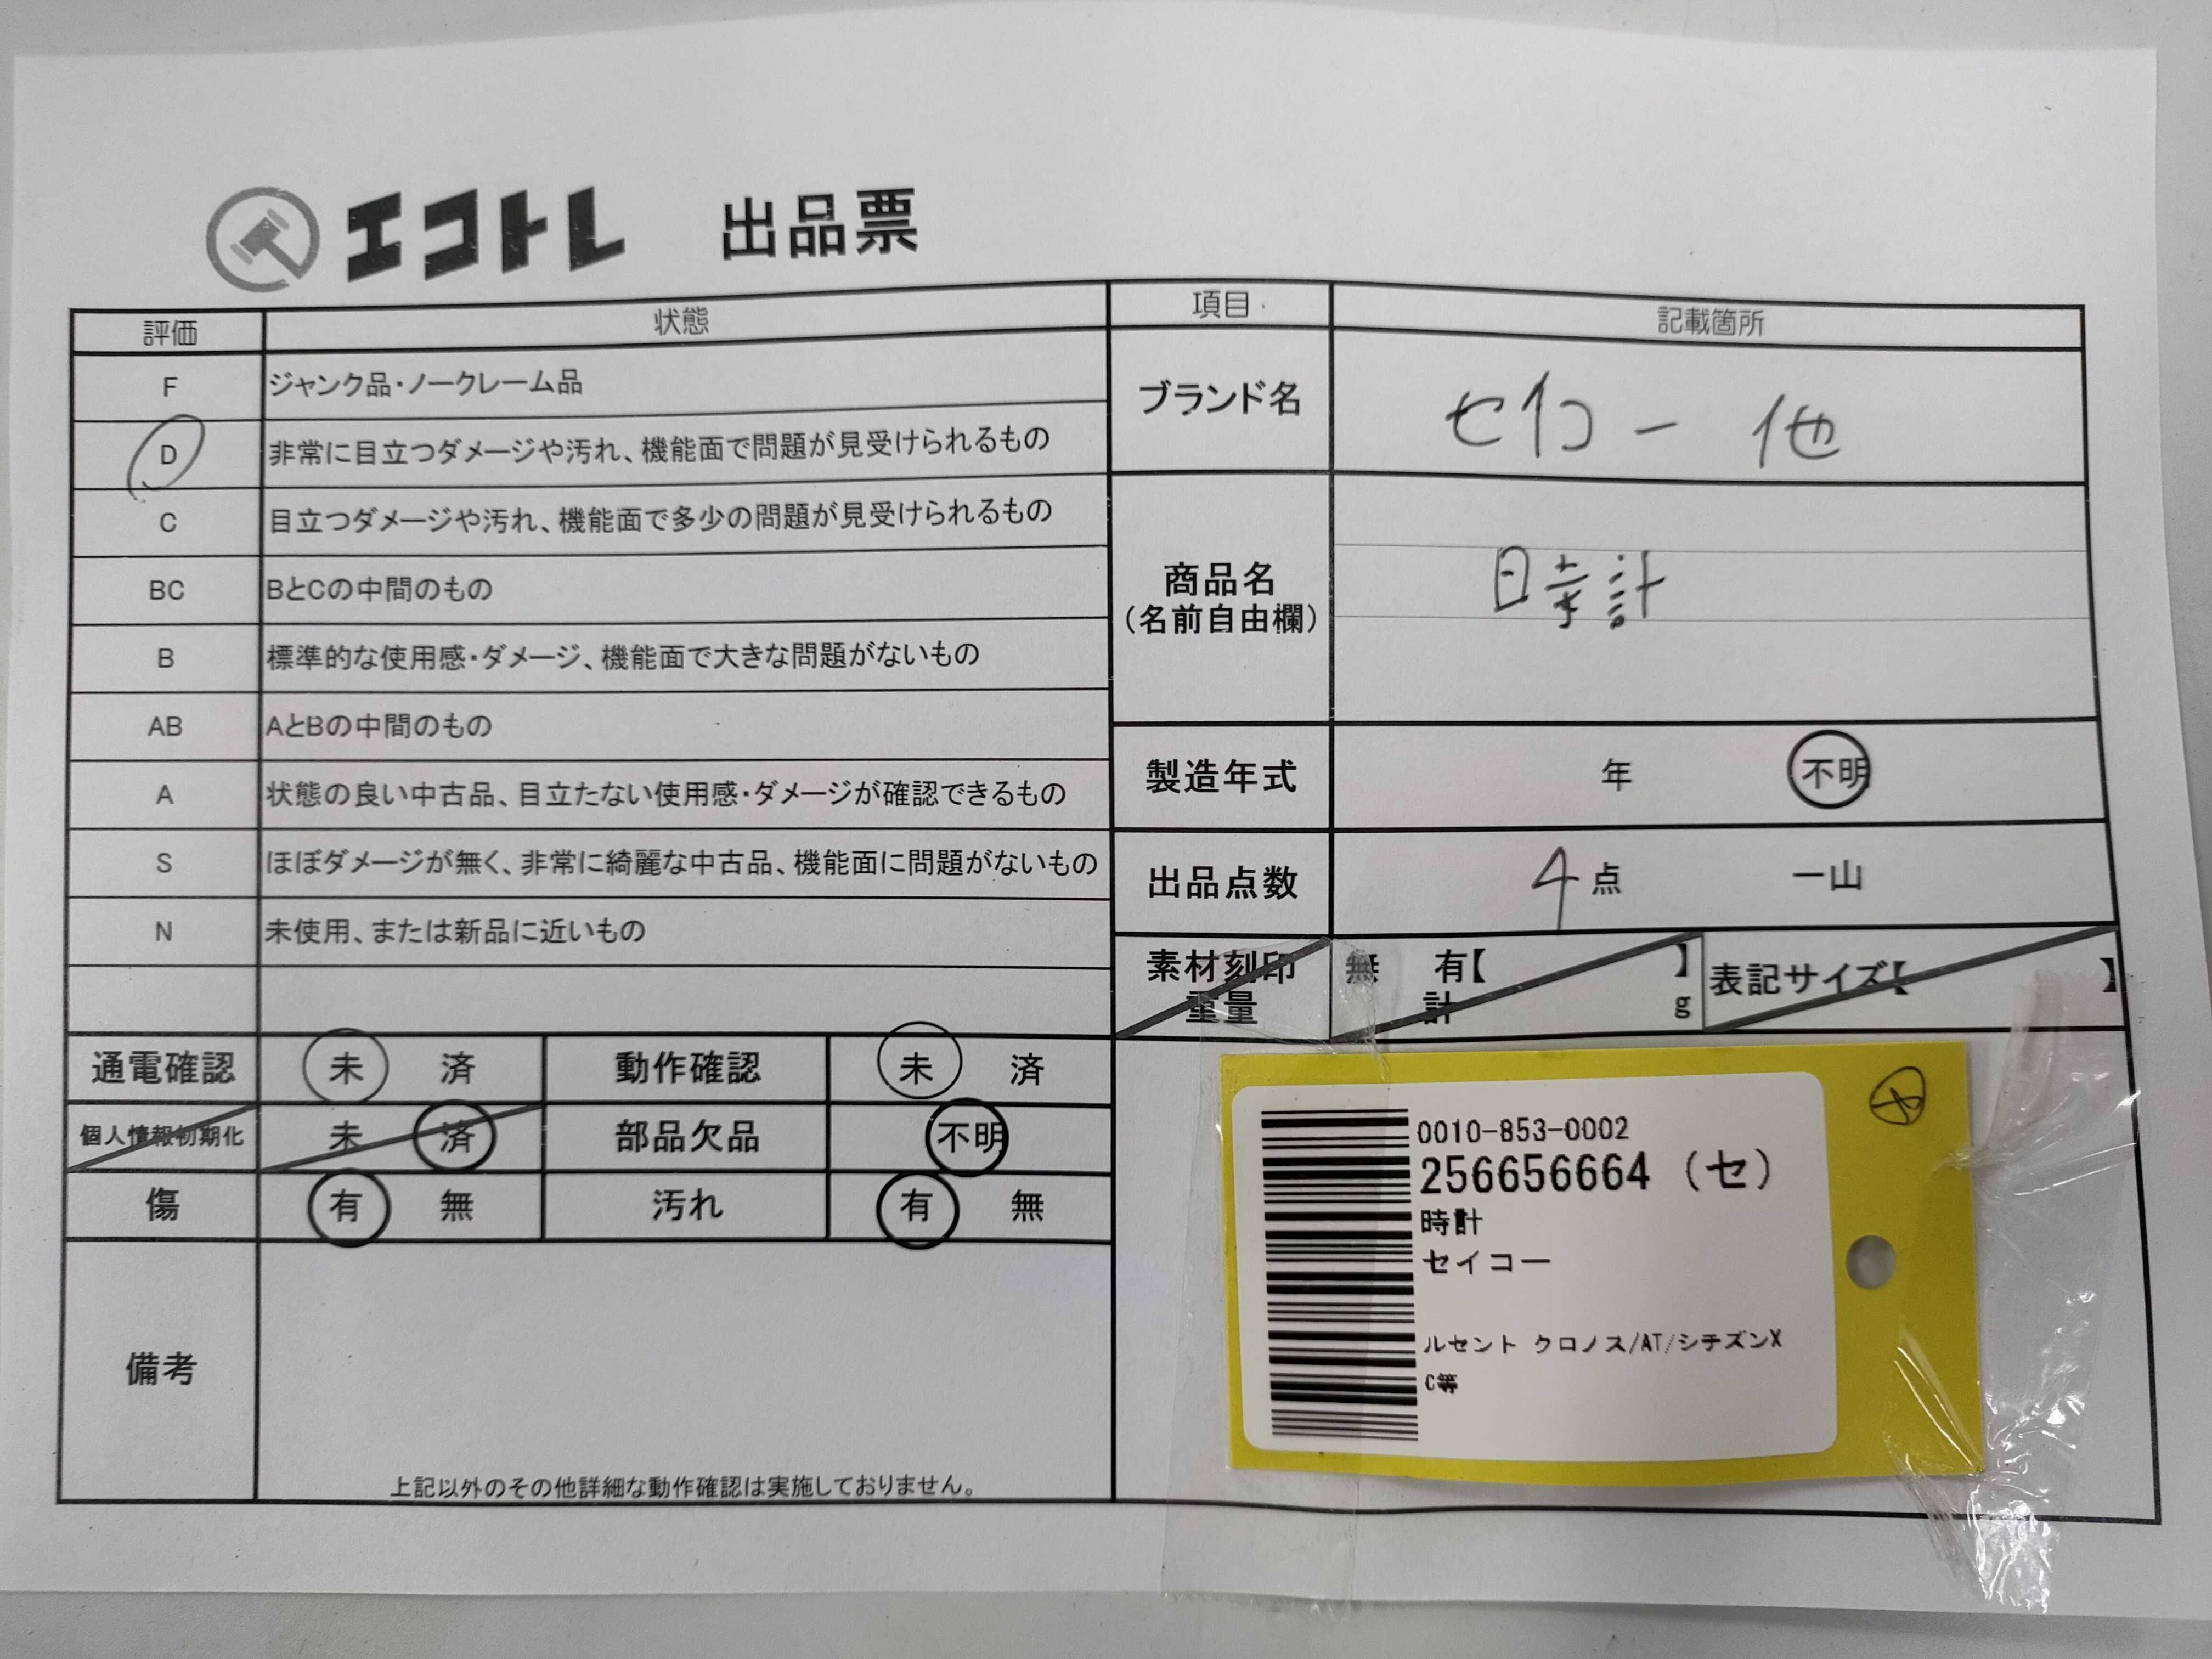 エコトレ 出品票
評価 状態
F ジャンク品・ノークレーム品
D 非常に目立つダメージや汚れ、機能面で問題が見受けられるもの
C 目立つダメージや汚れ、機能面で多少の問題が見受けられるもの
BC BとCの中間のもの
B 標準的な使用感・ダメージ、機能面で大きな問題がないもの
AB AとBの中間のもの
A 状態の良い中古品、目立たない使用感・ダメージが確認できるもの
S ほぼダメージが無く、非常に綺麗な中古品、機能面に問題がないもの
N 未使用、または新品に近いもの
通電確認 未 済 動作確認 未 済
個人情報初期化 未 済 部品欠品 不明
傷 有 無 汚れ 有 無
備考
上記以外のその他詳細な動作確認は実施しておりません。
項目 記載箇所
ブランド名 セイコー 他
商品名
(名前自由欄)
時計
製造年式 年 不明
出品点数 4点 一山
素材刻印 無 有【 】 表記サイズ【 】
重量 計 g
0010-853-0002
256656664 (セ)
時計
セイコー
ルセント クロノス/AT/シチズンX
C等